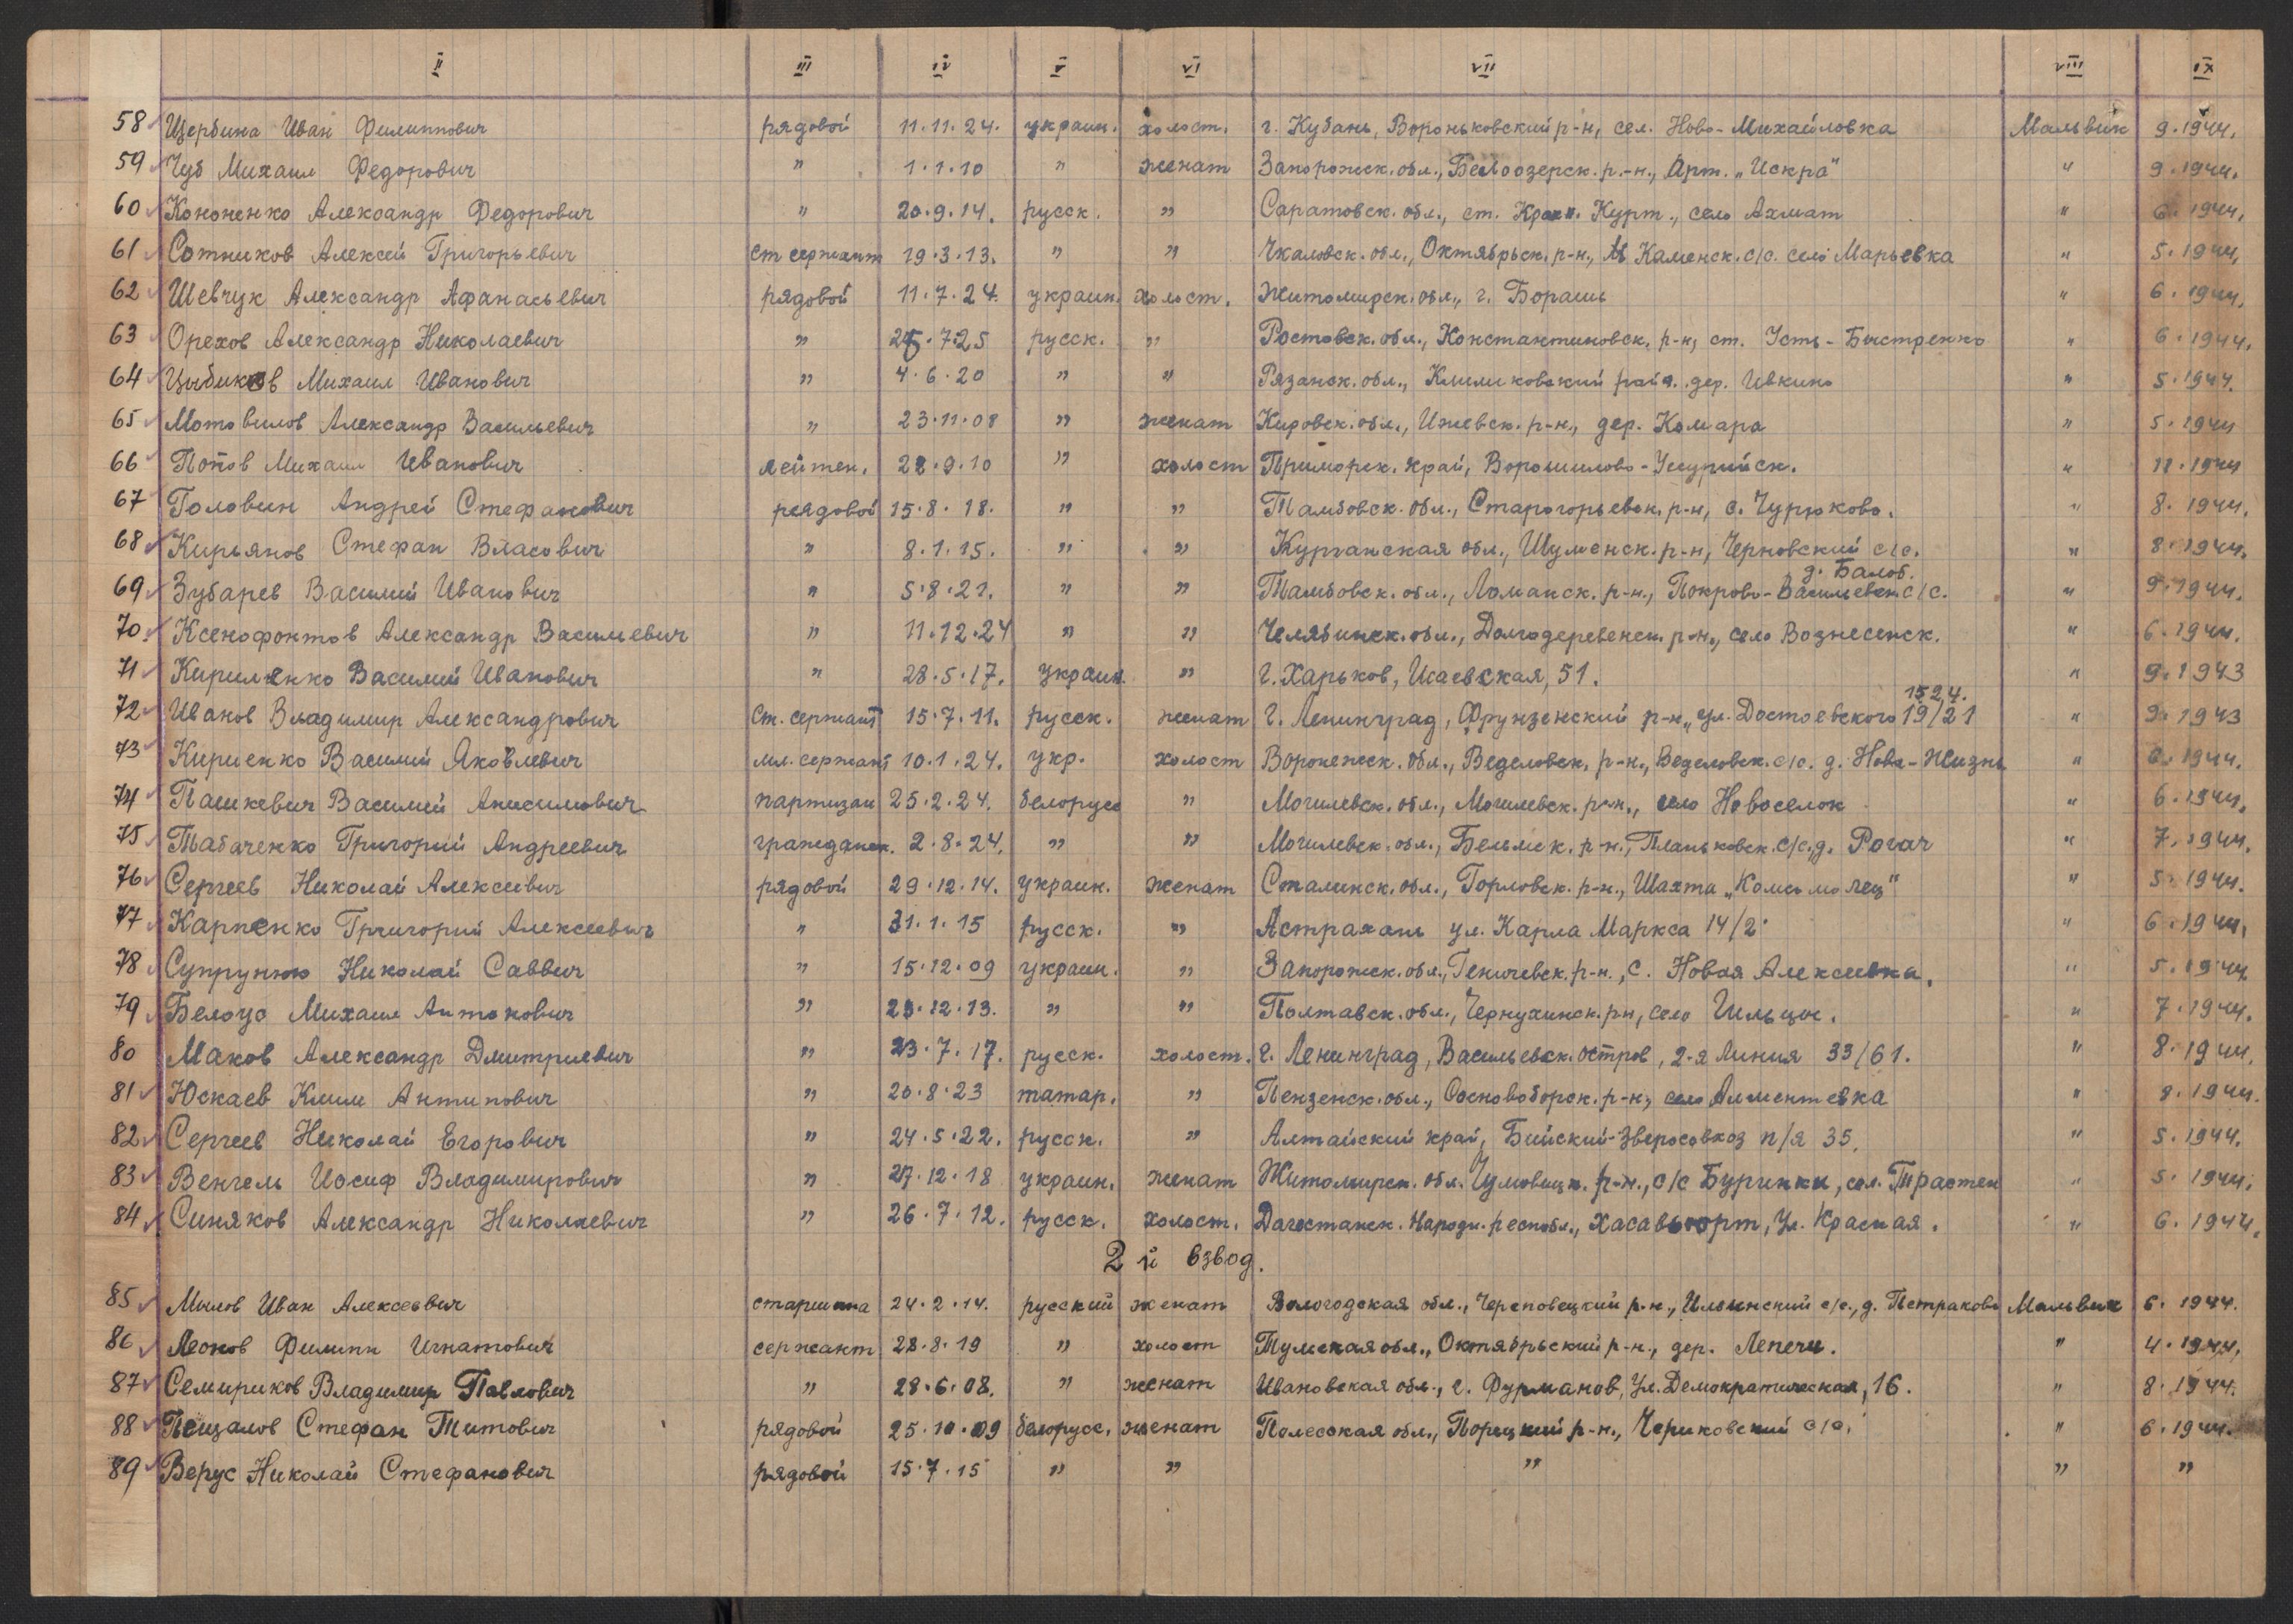 II III IV V VI VII VIII IX
58 Щербина Иван Филиппович рядовой 11.11.24. украин. холост. г. Кубань, Вороньковский р-н, сел. Ново-Михайловка Мальвик 9.1944.
59 Чуб Михаил Федорович " 1.1.10 " женат Запорожск. обл., Белоозерск. р.-н., Арт. „Искра" " 9.1944.
60 Кононенко Александр Федорович " 20.9.14. русск. " Саратовск. обл., ст. Красн. Курт., село Ахмат " 6.1944.
61 Сотников Алексей Григорьевич ст сержант 19.3.13. " " Чкаловск. обл., Октябрьск. р-н., Каменск. с/с. село Марьевка " 5.1944.
62 Шевчук Александр Афанасьевич рядовой 11.7.24. украин. холост. Житомирск. обл., г. Бораши " 6.1944.
63 Орехов Александр Николаевич " 25.7.25 русск. " Ростовск. обл., Константиновск. р-н, ст. Усть-Быстренко " 6.1944.
64 Цыбиков Михаил Иванович " 4.6.20 " " Рязанск. обл., Клипиковский район. дер. Ивкино " 5.1944.
65 Мотовилов Александр Васильевич " 23.11.08 " женат Кировск. обл., Ижевск. р-н., дер. Комара " 5.1944
66 Попов Михаил Иванович лейтен. 28.9.10 " холост Приморск. край, Ворошилово-Усурийск. " 11.1944
67 Головин Андрей Стефанович рядовой 15.8.18. " " Тамбовск. обл., Старогорьевск. р-н, с. Чурюково. " 8.1944.
68 Кирьянов Стефан Власович " 8.1.15. " " Курганская обл., Шуменск. р-н, Черновский с/с. " 8.1944.
д. Балоб.
69 Зубарев Василий Иванович " 5.8.21. " " Тамбовск. обл., Ломанск. р-н., Покрово-Васильевск. с/с. " 9.1944.
70. Ксенофонтов Александр Васильевич " 11.12.24 " " Челябинск. обл., Долгодеревенск. р-н., село Вознесенск. " 6.1944.
71 Кириленко Василий Иванович " 28.5.17. украин. " г. Харьков, Исаевская, 51. " 9.1943
1524.
72 Иванов Владимир Александрович Ст. сержант 15.7.11. русск. женат г. Ленинград, Фрунзенский р-н, ул. Достоевского 19/21 " 9.1943
73 Кириенко Василий Яковлевич мл. сержант 10.1.24. укр. холост Воронежск. обл., Веделовск. р-н., Веделовск. с/с. д. Нова-Жизнь " 6.1944.
74 Пашкевич Василий Анисимович партизан 25.2.24. белорусс " Могилевск. обл., Могилевск. р-н., село Новоселок " 6.1944.
75 Табаченко Григорий Андреевич гражданск. 2.8.24. " " Могилевск. обл., Бельмск. р-н., Планьковск. с/с, д. Рогач " 7.1944.
76 Сергеев Николай Алексеевич рядовой 29.12.14. украин. женат Сталинск. обл., Горловск. р-н., Шахта „Комсомолец" " 5.1944.
77 Карпенко Григорий Алексеевич " 31.1.15 русск. " Астрахань ул. Карла Маркса 14/2. " 6.1944.
78 Супрунюо Николай Саввич " 15.12.09 украин. " Запорожск. обл., Геничевск. р-н., с. Новая Алексеевка. " 5.1944.
79 Белоус Михаил Антонович " 23.12.13. " " Полтавск. обл., Чернухинск. р-н, село Гильцы. " 7.1944.
80 Маков Александр Дмитриевич " 23.7.17. русск. холост. г. Ленинград, Васильевск. остров, 2-я Линия 33/61. " 8.1944.
81 Юскаев Клим Антипович " 20.8.23 татар. " Пензенск. обл., Сосновоборск. р-н, село Алментевка " 8.1944.
82 Сергеев Николай Егорович " 24.5.22. русск. " Алтайский край, Бийский-Зверосовхоз п/я 35. " 5.1944.
83 Венгель Иосиф Владимирович " 27.12.18 украин. женат Житомирск. обл. Чумовицк. р-н., с/с Буринки, сел. Трастен " 5.1944.
84 Синяков Александр Николаевич " 26.7.12. русск. холост. Дагестанск. Народн. респобл., Хасавьюрт, Ул. Красная. " 6.1944.
2 й взвод.
85 Милов Иван Алексеевич старшина 24.2.14. русский женат Вологодская обл., Череповецкий р-н., Ильинский с/с., д. Петраково Мальвик 6.1944.
86 Леонов Филипп Игнатович сержант 28.8.19 " холост Тульская обл., Октябрьский р-н., дер. Лепечи. " 4.1944.
87 Семириков Владимир Павлович " 28.6.08. " женат Ивановская обл., г. Фурманов, Ул. Демократическая, 16. " 8.1944.
88 Пещалов Стефан Титович рядовой 25.10.09 белорусс. женат Полесская обл., Порецкий р-н., Чериковский с/с. " 6.1944.
89 Верус Николай Стефанович рядовой 15.7.15 " " " " "